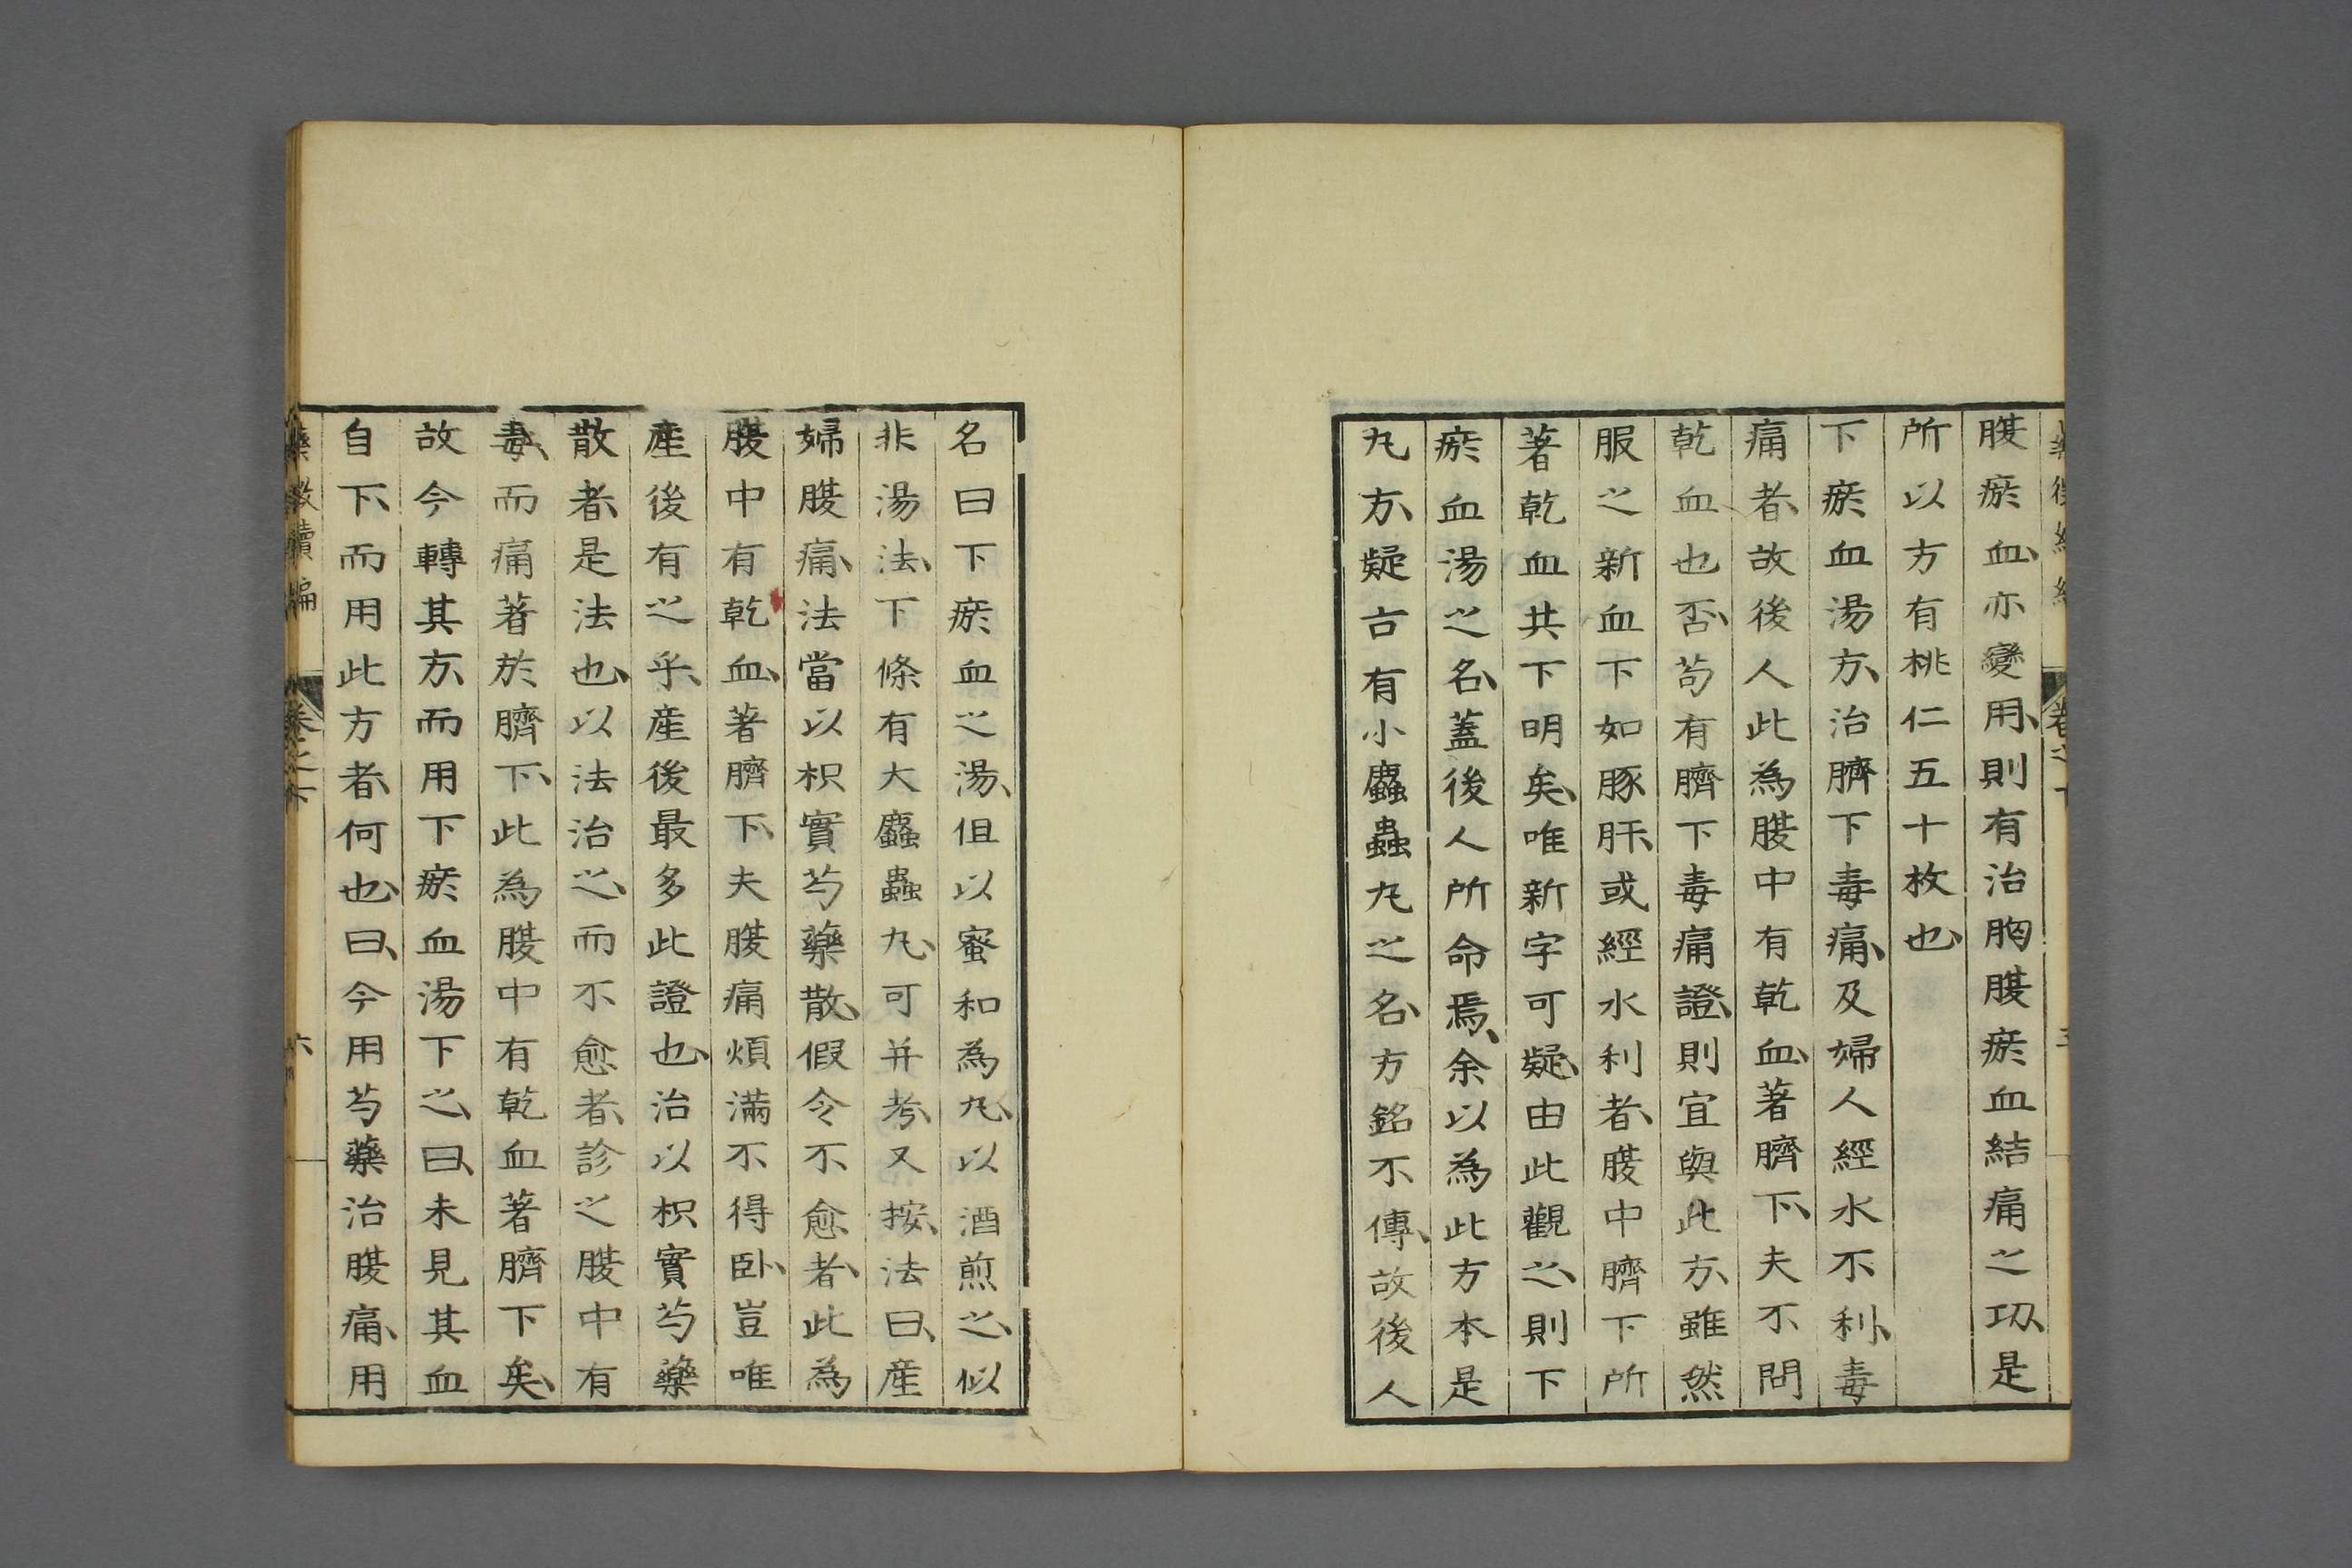 腹瘀血、亦變用、則有治胸腹瘀血結痛之功、是
所以方有桃仁五十枚也、
下瘀血湯方、治臍下毒痛、及婦人經水不利、毒
痛者、故後人此為腹中有乾血、著臍下、夫不問
乾血也否、苟有臍下毒痛證、則宜與此方、雖然
服之新血下如豚肝、或經水利者、腹中臍下所
著乾血共下明矣、唯新字可疑、由此觀之、則下
瘀血湯之名、蓋後人所命焉、余以為此方本是
丸方、疑古有小䗪蟲丸之名、方銘不傳、故後人
名曰下瘀血之湯、但以蜜和為丸、以酒煎之、似
非湯法、下條有大䗪蟲丸、可并考、又按、法曰、產
婦腹痛、法當以枳實芍藥散、假令不愈者、此為
腹中有乾血、著臍下、夫腹痛煩滿不得臥、豈唯
產後有之乎、產後最多此證也、治以枳實芍藥
散者、是法也、以法治之、而不愈者、診之腹中有
毒、而痛著於臍下、此為腹中有乾血著臍下矣、
故今轉其方、而用下瘀血湯下之、曰、未見其血
自下、而用此方者、何也、曰、今用芍藥治腹痛、用
藥徵續編 卷之下 六